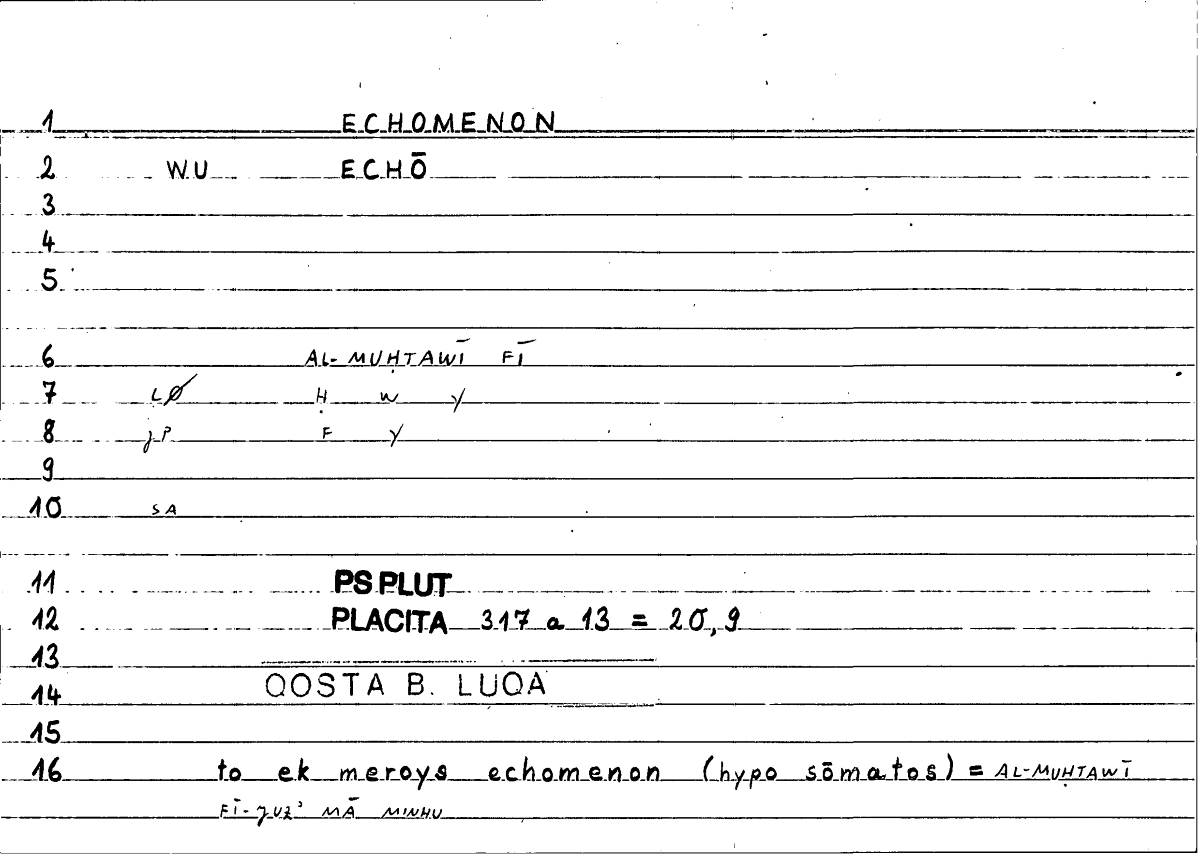 1 ECHOMENON
2 WU ECHŌ
3
4
5
6 AL-MUḤTAWĪ FĪ
7 LØ Ḥ W Y
8 jP F Y
9
10 SA
11 PS PLUT
12 PLACITA 317 a 13 = 20,9
13
14 QOSTA B. LUQA
15
16 to ek meroys echomenon (hypo sōmatos) = AL-MUḤTAWĪ
FĪ-ǦUZʾ MĀ MINHU